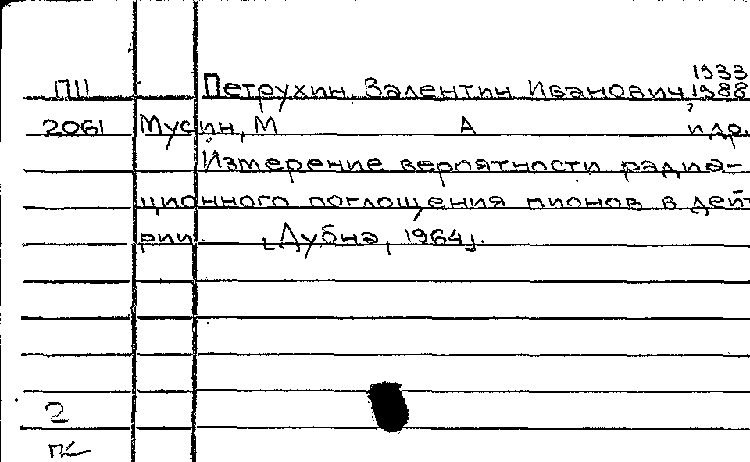 1933
П11 Петрухин Валентин Иванович, 1988
2061 Мусин, М А и др.
Измерение вероятности радиа-
ционного поглощения пионов в дейт
рии [Дубна, 1964].
2